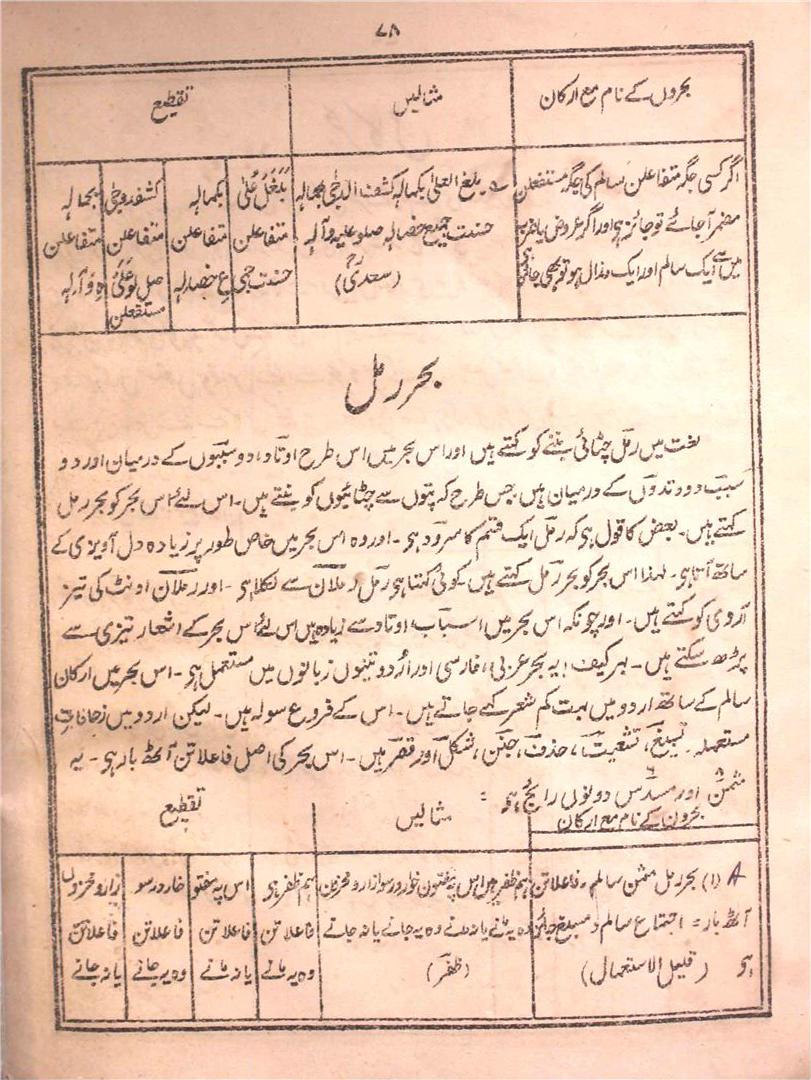 ۷۸
بحروں کے نام مع ارکان
مثالیں
تقطیع
اگر کسی جگہ متفاعلن سالم کی جگہ مستفعلن
مضمر آ جائے تو جائز ہے اور اگر عروض یا ضرب
میں سے ایک سالم اور ایک مذال ہو تو بھی جائز ہے
بلغ العلیٰ بکمالہ کشف الدجیٰ بجمالہ
حسنت جمیع خصالہ صلو علیہ و آلہ
(سعدیؒ)
بَلَغَلْ عُلیٰ بکمالہ کشفد دجیٰ بجمالہ
متفاعلن متفاعلن متفاعلن متفاعلن
حسنت جمی عِ خصالہ صل لو عَلَیْ ہِ وَ آلہ
مستفعلن
بحر رمل
لغت میں رمل چٹائی بننے کو کہتے ہیں اور اس بحر میں اس طرح اوتاد، دو سببوں کے درمیان اور دو
سبب دو وتدوں کے درمیان ہیں جس طرح کہ پتوں سے چٹائیوں کو بنتے ہیں۔ اس لئے اس بحر کو بحر رمل
کہتے ہیں۔ بعض کا قول ہے کہ رمل ایک قسم کا سرود ہے۔ اور وہ اس بحر میں خاص طور پر زیادہ دل آویزی کے
ساتھ آتا ہے۔ لہذا اس بحر کو بحر رمل کہتے ہیں کوئی کہتا ہے رمل رملان سے نکلا ہے۔ اور رملان اونٹ کی تیز
روی کو کہتے ہیں۔ اور چونکہ اس بحر میں اسباب، اوتاد سے زیادہ ہیں اس لئے اس بحر کے اشعار تیزی سے
پڑھ سکتے ہیں۔ بہر کیف! یہ بحر عربی، فارسی اور اردو تینوں زبانوں میں مستعمل ہے۔ اس بحر میں ارکان
سالم کے ساتھ اردو میں بہت کم شعر کہے جاتے ہیں۔ اس کے فروع سولہ ہیں۔ لیکن اردو میں زحافات
مستعملہ۔ تسبیغ، تشعیث، حذف، خبن، شکل اور قصر ہیں۔ اس بحر کی اصل فاعلاتن آٹھ بار ہے۔ یہ
مثمن اور مسدس دونوں رائج ہے۔
بحروں کے نام مع ارکان
مثالیں
تقطیع
(۱) بحر رمل مثمن سالم۔ فاعلاتن
آٹھ بار = اجتماع سالم و مسبغ جائز
ہے (قلیل الاستعمال)
ہم ظفر ہیں اس پہ مفتون خوار و رسوا زار و محزون
وہ یہ مانے یا نہ مانے وہ یہ جانے یا نہ جانے
(ظفر)
ہم ظفر ہیں اس پہ مفتو خار و رسو زار و محزوں
فاعلاتن فاعلاتن فاعلاتن فاعلاتن
وہ یہ مانے یا نہ مانے وہ یہ جانے یا نہ جانے